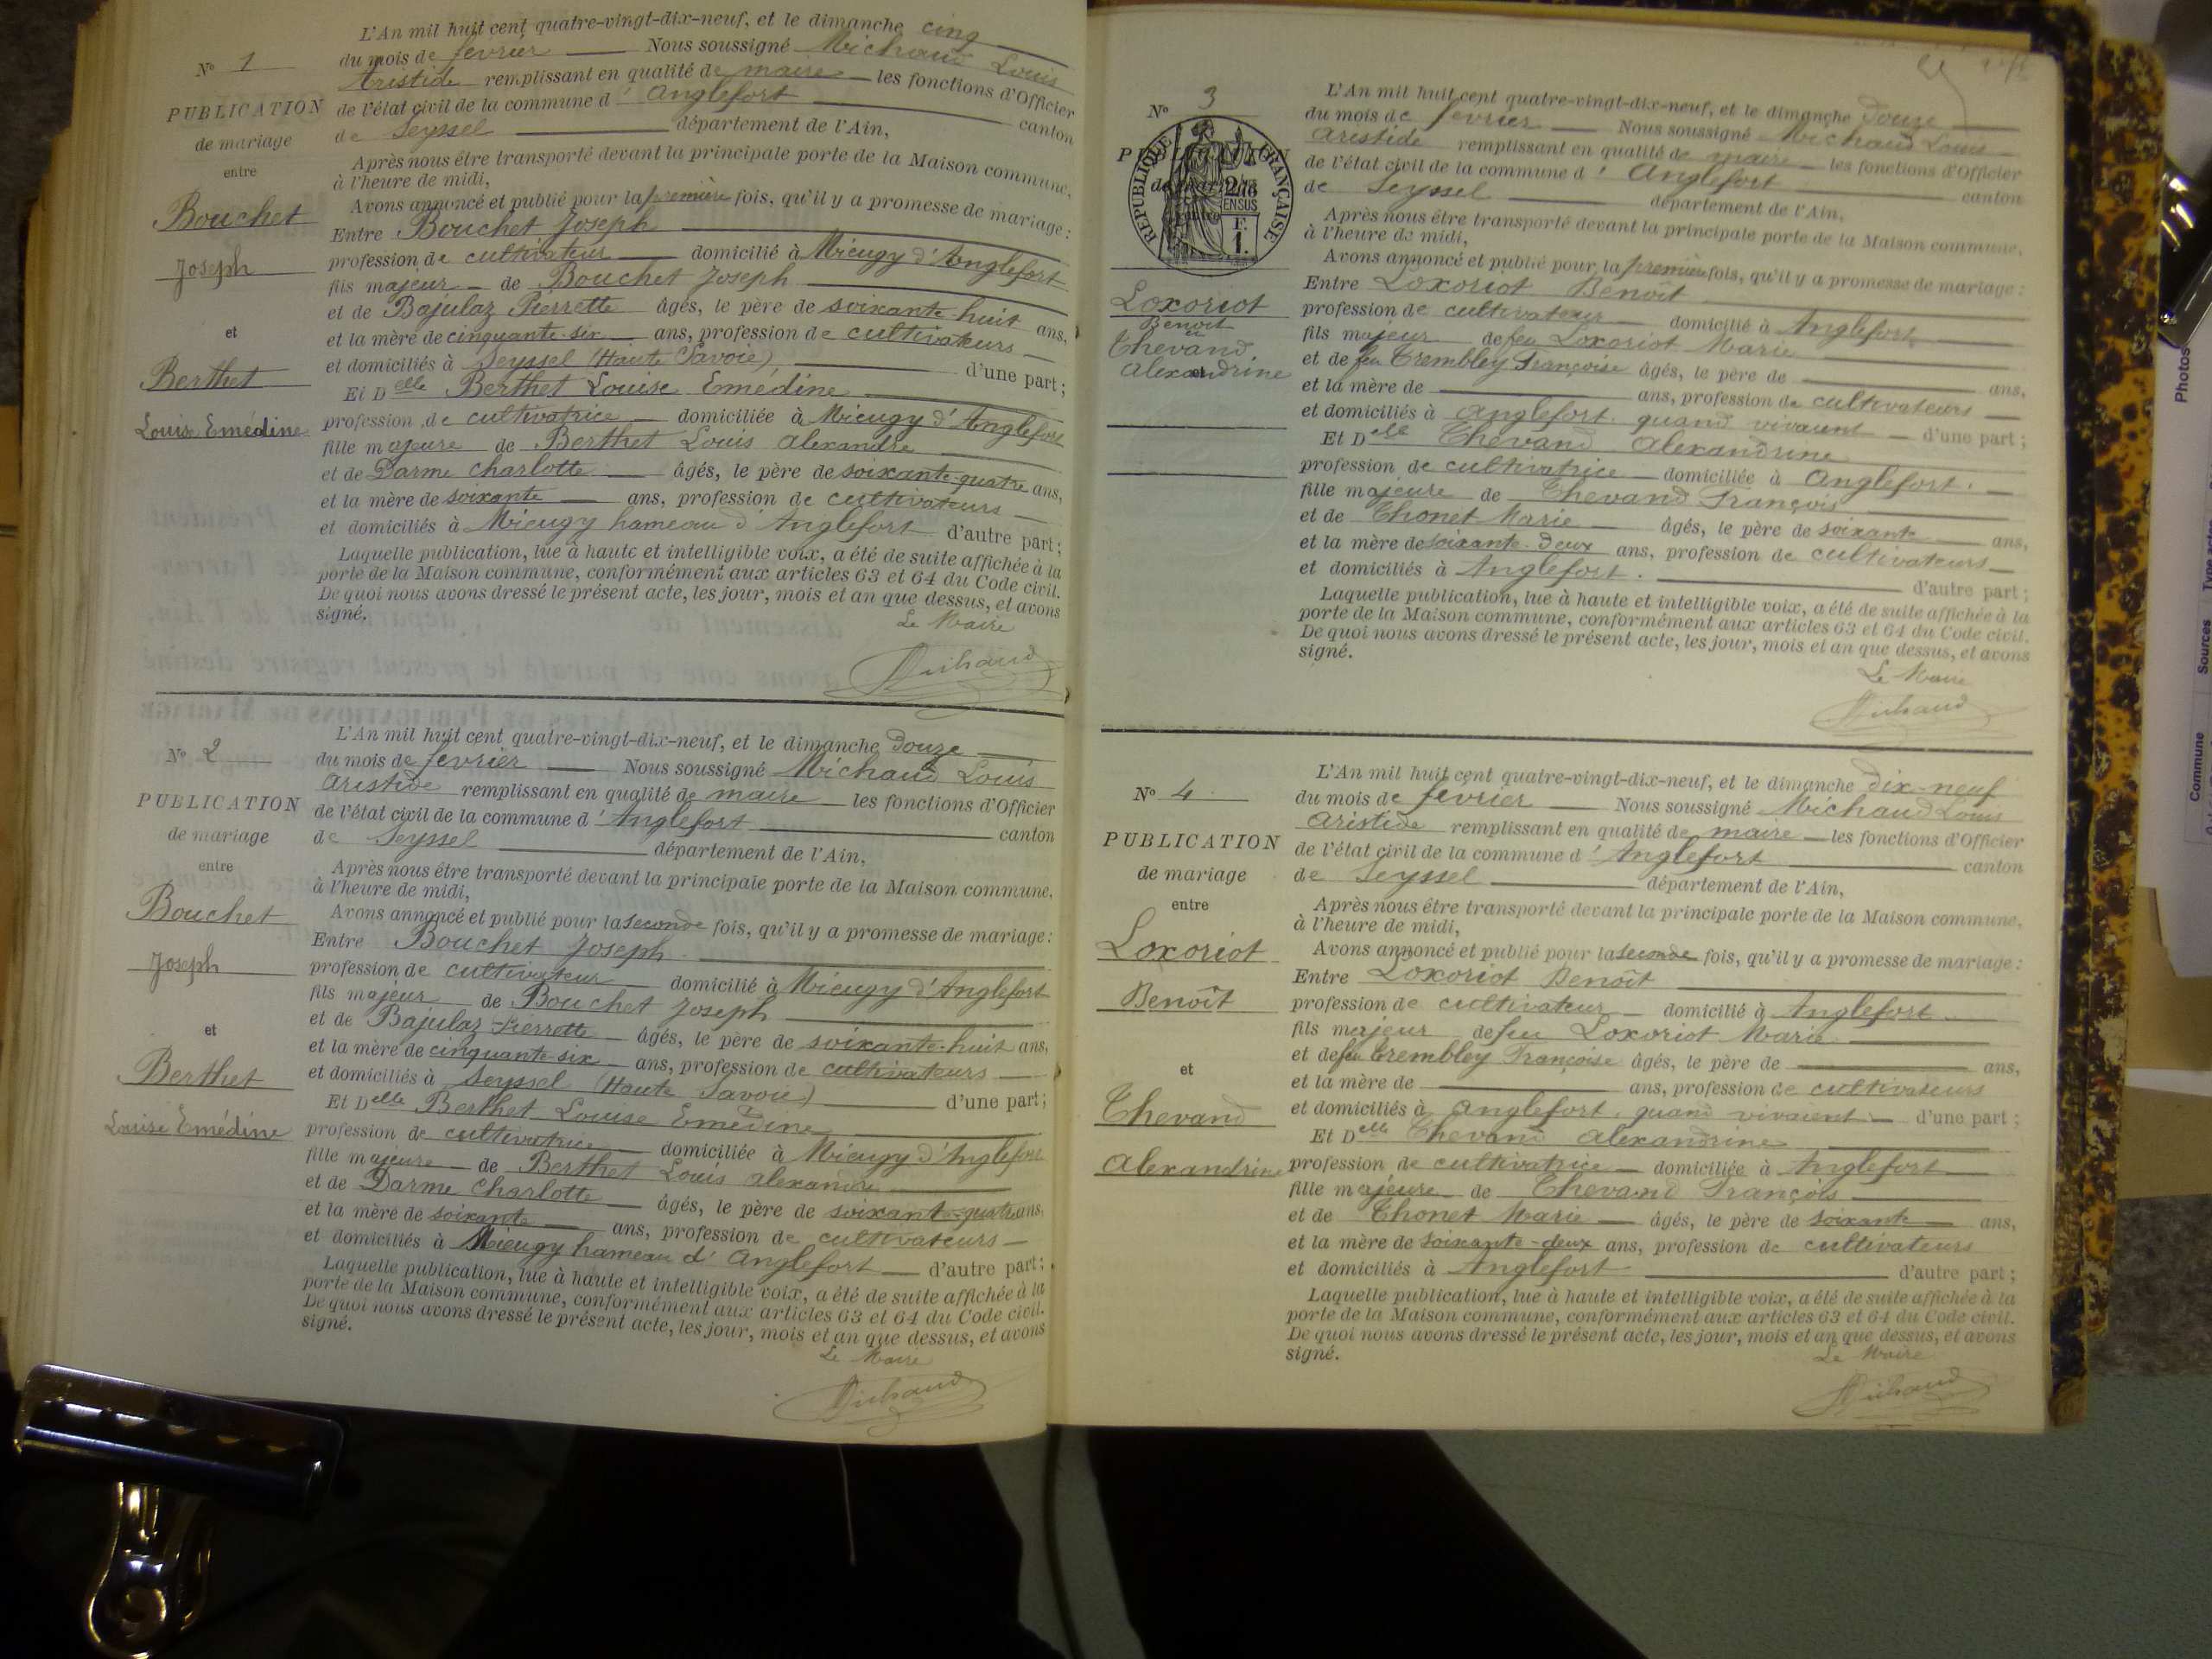 L'An mil huit cent quatre-vingt-dix-neuf, et le dimanche cinq
du mois de février Nous soussigné Michaud Louis
Aristide remplissant en qualité de maire les fonctions d'Officier
de l'état civil de la commune d'Anglefort canton
de Seyssel département de l'Ain,
Après nous être transporté devant la principale porte de la Maison commune,
à l'heure de midi,
Avons annoncé et publié pour la première fois, qu'il y a promesse de mariage :
Entre Bouchet Joseph
profession de cultivateur domicilié à Mieugy d'Anglefort
fils majeur de Bouchet Joseph
et de Bajulaz Pierrette âgés, le père de soixante huit ans,
et la mère de cinquante-six ans, profession de cultivateurs
et domiciliés à Seyssel (Haute Savoie) d'une part ;
Et Delle Berthet Louise Emédine
profession de cultivatrice domiciliée à Mieugy d'Anglefort
fille majeure de Berthet Louis alexandre
et de Darme Charlotte âgés, le père de soixante-quatre ans,
et la mère de soixante ans, profession de cultivateurs
et domiciliés à Mieugy hameau d'Anglefort d'autre part ;
Laquelle publication, lue à haute et intelligible voix, a été de suite affichée à la
porte de la Maison commune, conformément aux articles 63 et 64 du Code civil.
De quoi nous avons dressé le présent acte, les jour, mois et an que dessus, et avons
signé.
Le Maire
Michaud
N° 1
PUBLICATION
de mariage
entre
Bouchet
Joseph
et
Berthet
Louise Emédine
L'An mil huit cent quatre-vingt-dix-neuf, et le dimanche douze
du mois de février Nous soussigné Michaud Louis
Aristide remplissant en qualité de maire les fonctions d'Officier
de l'état civil de la commune d'Anglefort canton
de Seyssel département de l'Ain,
Après nous être transporté devant la principale porte de la Maison commune,
à l'heure de midi,
Avons annoncé et publié pour la seconde fois, qu'il y a promesse de mariage :
Entre Bouchet Joseph
profession de cultivateur domicilié à Mieugy d'Anglefort
fils majeur de Bouchet Joseph
et de Bajulaz Pierrette âgés, le père de soixante-huit ans,
et la mère de cinquante-six ans, profession de cultivateurs
et domiciliés à Seyssel (Haute Savoie) d'une part ;
Et Delle Berthet Louise Emédine
profession de cultivatrice domiciliée à Mieugy d'Anglefort
fille majeure de Berthet Louis alexandre
et de Darme Charlotte âgés, le père de soixante-quatre ans,
et la mère de soixante ans, profession de cultivateurs
et domiciliés à Mieugy hameau d'Anglefort d'autre part ;
Laquelle publication, lue à haute et intelligible voix, a été de suite affichée à la
porte de la Maison commune, conformément aux articles 63 et 64 du Code civil.
De quoi nous avons dressé le présent acte, les jour, mois et an que dessus, et avons
signé.
Le Maire
Michaud
N° 2
PUBLICATION
de mariage
entre
Bouchet
Joseph
et
Berthet
Louise Emédine
L'An mil huit cent quatre-vingt-dix-neuf, et le dimanche douze
du mois de février Nous soussigné Michaud Louis
Aristide remplissant en qualité de maire les fonctions d'Officier
de l'état civil de la commune d'Anglefort canton
de Seyssel département de l'Ain,
Après nous être transporté devant la principale porte de la Maison commune,
à l'heure de midi,
Avons annoncé et publié pour la première fois, qu'il y a promesse de mariage :
Entre Loxoriot Benoît
profession de cultivateur domicilié à Anglefort
fils majeur de feu Loxoriot Marie
et de feu Trembley Françoise âgés, le père de ans,
et la mère de ans, profession de cultivateurs
et domiciliés à Anglefort quand vivaient d'une part ;
Et Delle Thevand Alexandrine
profession de cultivatrice domiciliée à Anglefort.
fille majeure de Thevand François
et de Thonet Marie âgés, le père de soixante ans,
et la mère de soixante-deux ans, profession de cultivateurs
et domiciliés à Anglefort. d'autre part ;
Laquelle publication, lue à haute et intelligible voix, a été de suite affichée à la
porte de la Maison commune, conformément aux articles 63 et 64 du Code civil.
De quoi nous avons dressé le présent acte, les jour, mois et an que dessus, et avons
signé.
Le Maire
Michaud
N° 3
RÉPUBLIQUE FRANÇAISE
Loxoriot
Benoît
et
Thevand
Alexandrine
L'An mil huit cent quatre-vingt-dix-neuf, et le dimanche dix-neuf
du mois de février Nous soussigné Michaud Louis
Aristide remplissant en qualité de maire les fonctions d'Officier
de l'état civil de la commune d'Anglefort canton
de Seyssel département de l'Ain,
Après nous être transporté devant la principale porte de la Maison commune,
à l'heure de midi,
Avons annoncé et publié pour la seconde fois, qu'il y a promesse de mariage :
Entre Loxoriot Benoît
profession de cultivateur domicilié à Anglefort
fils majeur de feu Loxoriot Marie
et de feu Trembley Françoise âgés, le père de ans,
et la mère de ans, profession de cultivateurs
et domiciliés à Anglefort quand vivaient d'une part ;
Et Delle Thevand Alexandrine
profession de cultivatrice domiciliée à Anglefort
fille majeure de Thevand François
et de Thonet Marie âgés, le père de soixante ans,
et la mère de soixante-deux ans, profession de cultivateurs
et domiciliés à Anglefort d'autre part ;
Laquelle publication, lue à haute et intelligible voix, a été de suite affichée à la
porte de la Maison commune, conformément aux articles 63 et 64 du Code civil.
De quoi nous avons dressé le présent acte, les jour, mois et an que dessus, et avons
signé.
Le Maire
Michaud
N° 4
PUBLICATION
de mariage
entre
Loxoriot
Benoît
et
Thevand
Alexandrine
Photos
Type acte
Sources
Commune